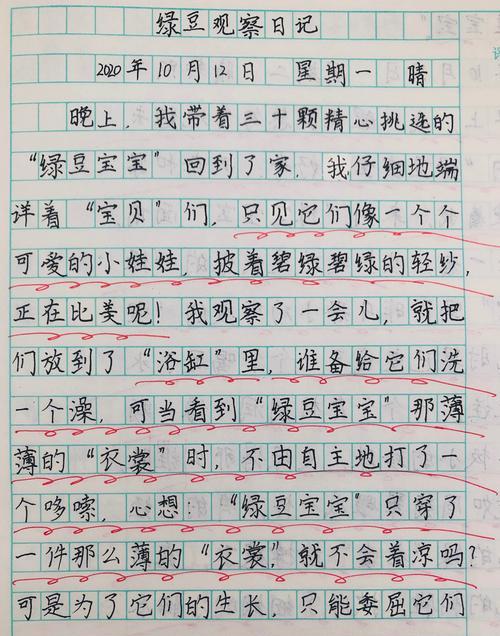 绿豆观察日记
2020年10月12日 星期一 晴
晚上，我带着三十颗精心挑选的
“绿豆宝宝”回到了家，我仔细地端
详着“宝贝”们，只见它们像一个个
可爱的小娃娃，披着碧绿碧绿的轻纱，
正在比美呢！我观察了一会儿，就把
们放到了“浴缸”里，准备给它们洗
一个澡，可当看到“绿豆宝宝”那薄
薄的“衣裳”时，不由自主地打了一
个哆嗦，心想：“绿豆宝宝”只穿了
一件那么薄的“衣裳”，就不会着凉吗？
可是为了它们的生长，只能委屈它们